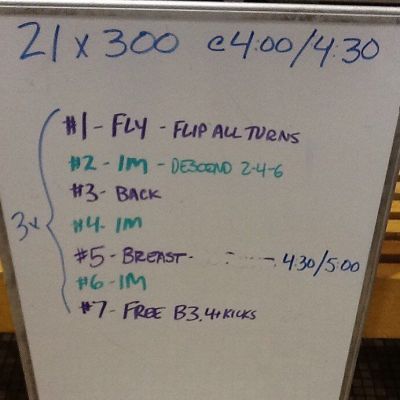 21 x 300 @4:00/4:30
#1 - FLY - FLIP ALL TURNS
#2 - IM - DESCEND 2-4-6
#3 - BACK
3x
#4 - IM
#5 - BREAST - 4:30/5:00
#6 - IM
#7 - FREE B3. 4+KICKS